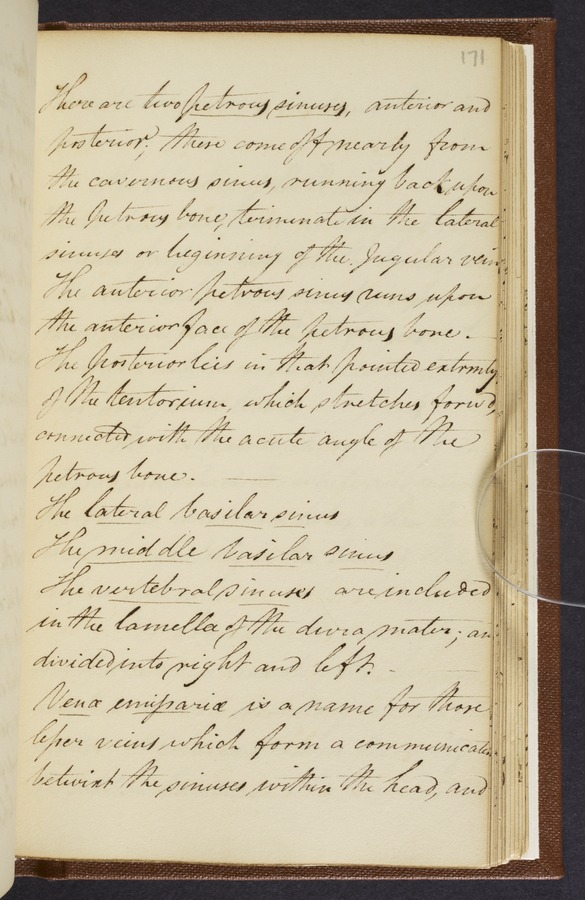 171
There are two petrous sinuses, anterior and
posterior; these come off nearly from
the cavernous sinus, running back upon
the petrous bone, terminate in the lateral
sinuses or beginning of the Jugular vein
The anterior petrous sinus runs upon
the anterior face of the petrous bone.
The posterior lies in that pointed extrmity
of the tentorium, which stretches forwd,
connected with the acute angle of the
petrous bone.
The lateral basilar sinus
The middle basilar sinus
The vertebral sinuses are included
in the lamella of the dura mater; an
divided into right and left.
Venæ emissariæ is a name for those
lesser veins which form a communicatn
betwixt the sinuses within the head, and